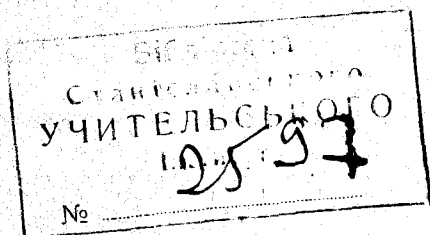 Бібліотека
Станіславського
УЧИТЕЛЬСЬКОГО
2597
№